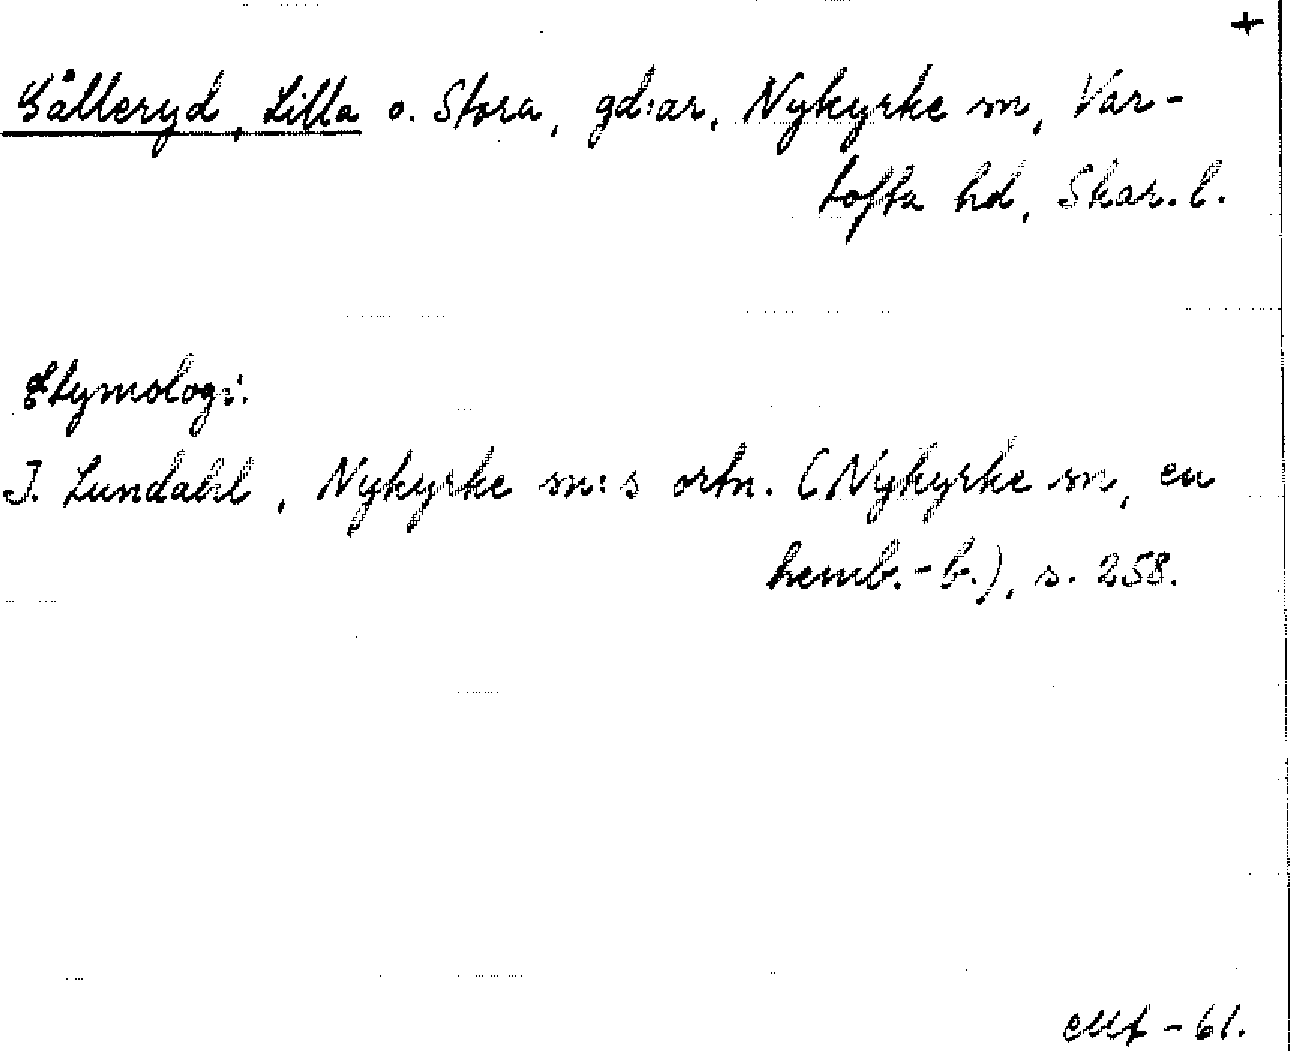 +
Gålleryd, Lilla o. Stora, gd:ar, Nykyrke sn, Var-
tofta hd, Skar. l.
Etymologi:
I. Lundahl, Nykyrke sn:s ortn. (Nykyrke sn, en
hemb.-b.), s. 258.
- 61.